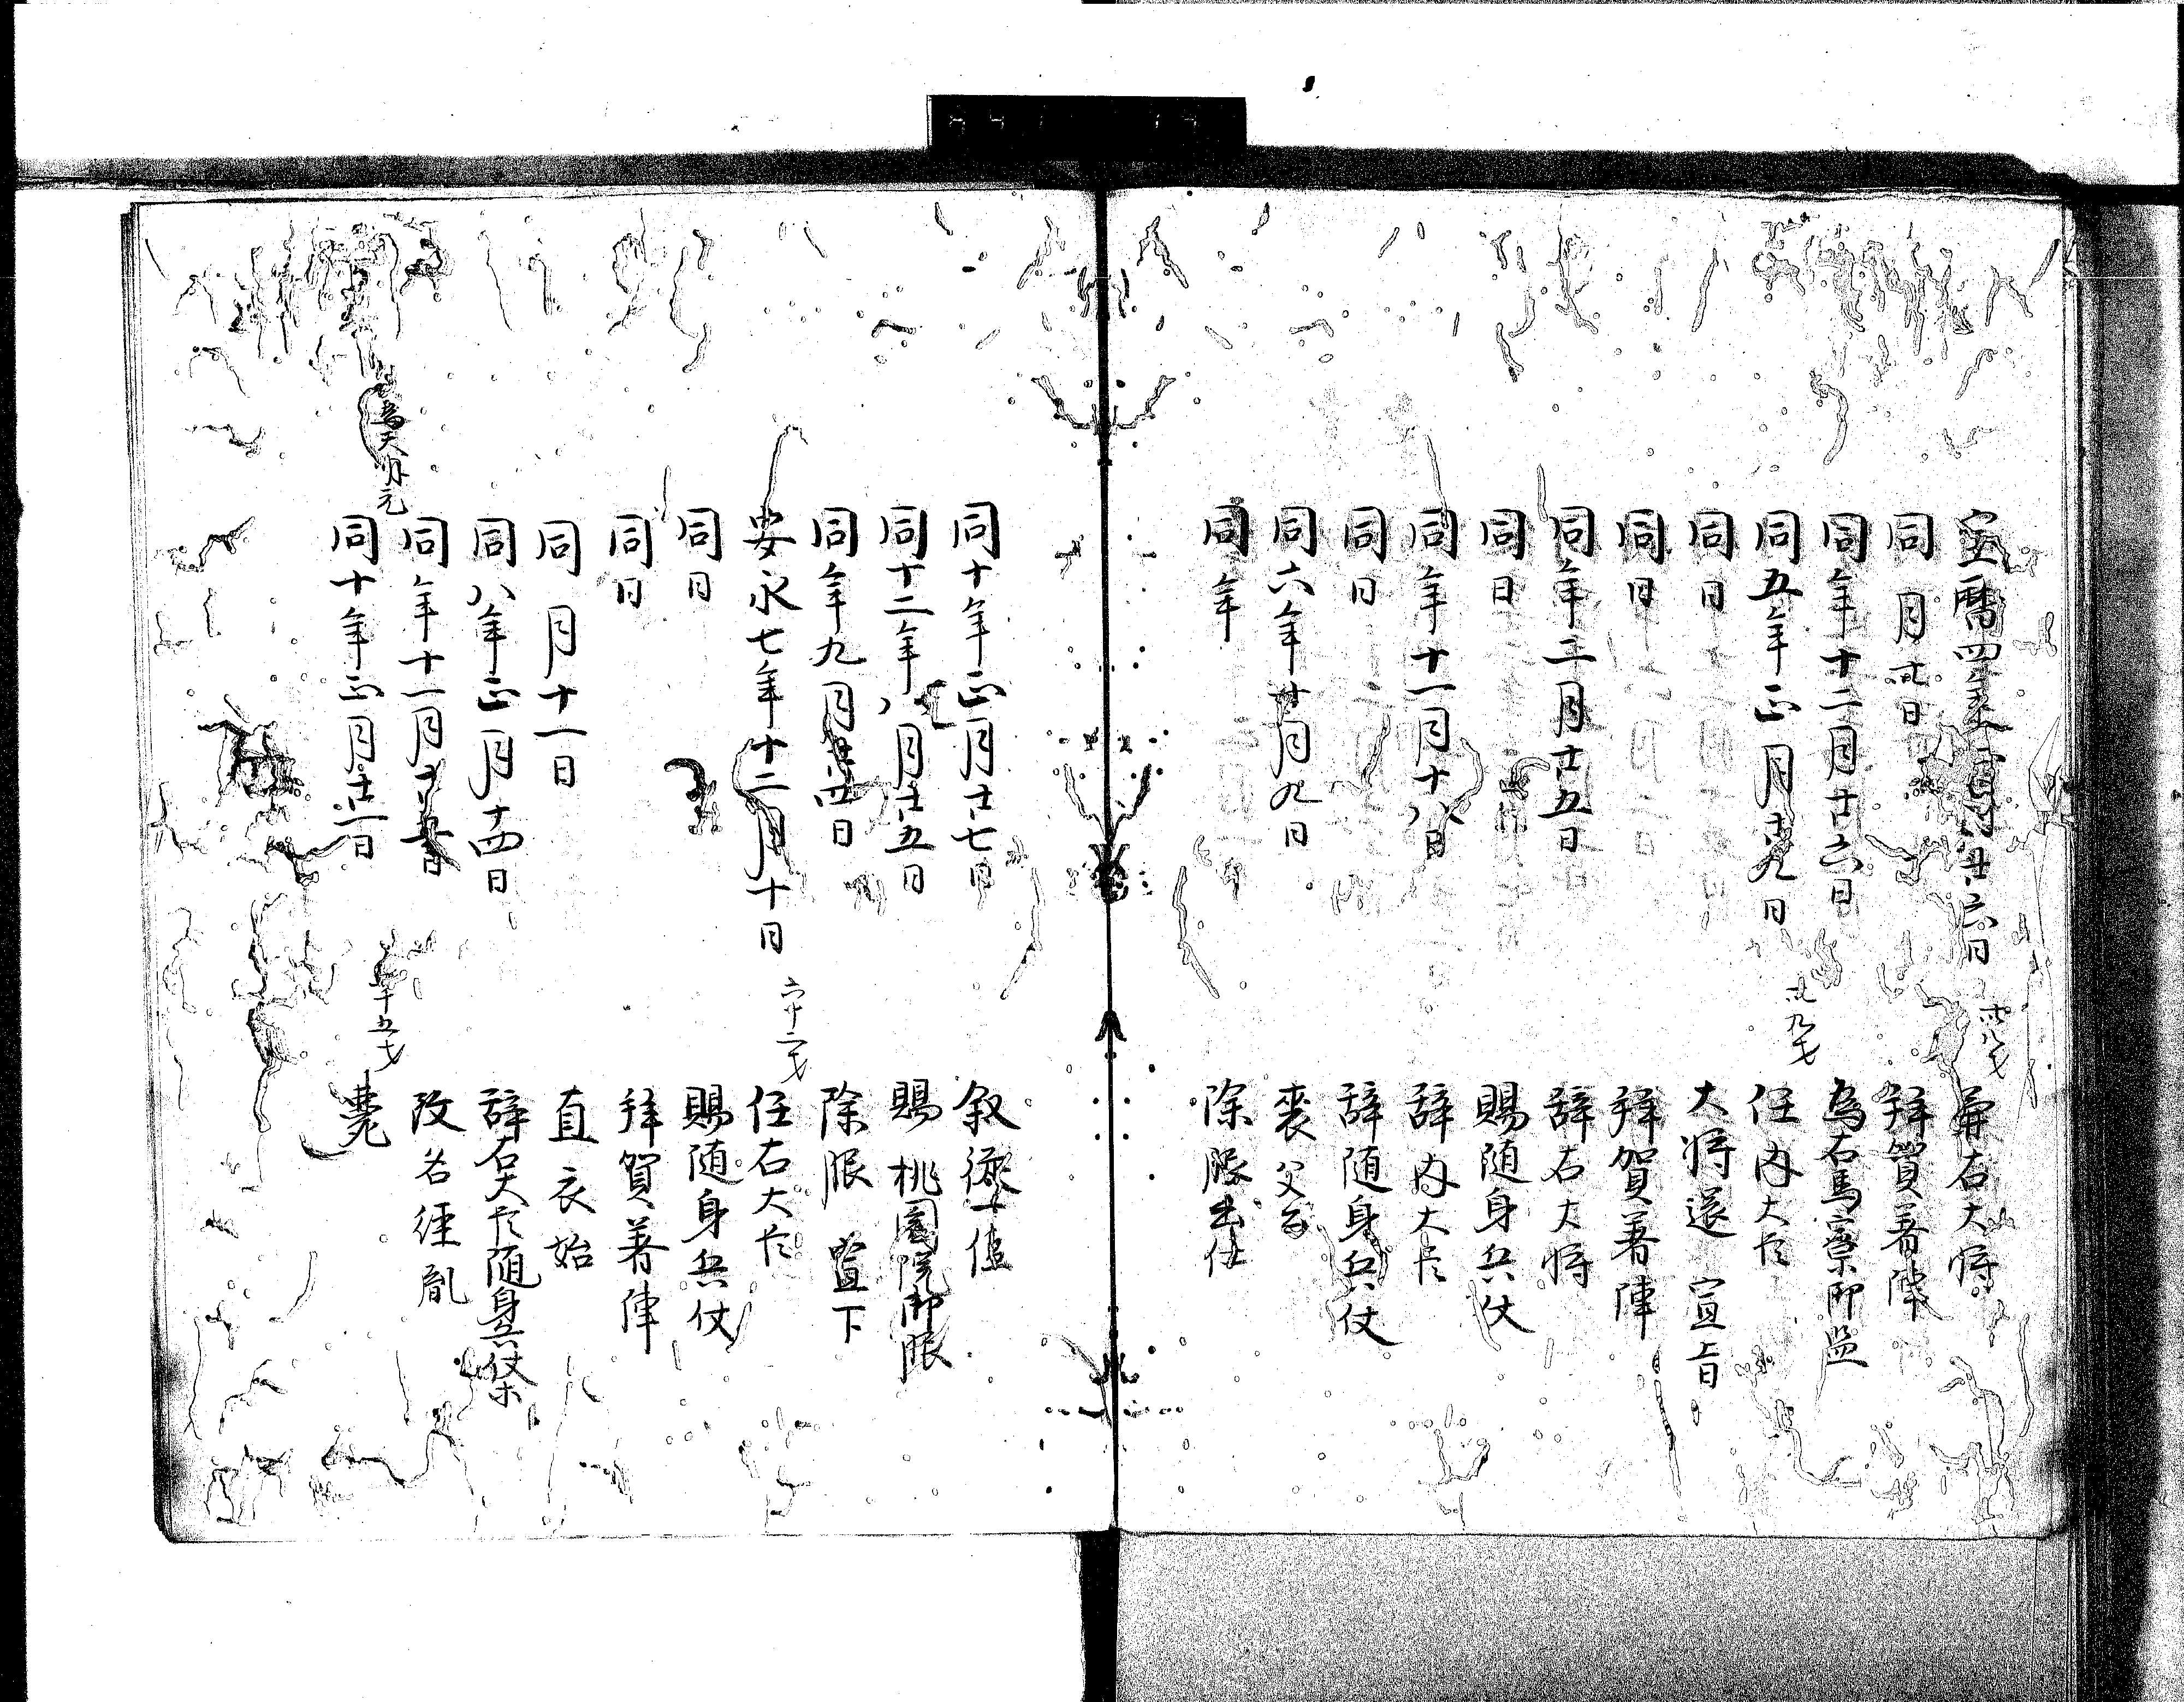 宝暦四年 月廿六日 卅八才 兼右大将
同 月 日 拝賀著陣
同年十二月廿六日 為右馬寮御監
同五年正月廿九日 卅九才 任内大臣
同日 大将還 宣旨
同日 拝賀著陣
同年二月廿五日 辞右大将
同日 賜随身兵仗
同年十一月十八日 辞内大臣
同日 辞随身兵仗
同六年 月九日 喪父公
同年 除服出仕
同十年正月廿七日 叙従一位
同十二年八月廿五日 賜桃園院御服
同年九月 日 除服 宣下
安永七年十二月十日 六十二才 任右大臣
同日 賜随身兵仗
同日 拝賀著陣
同 月十一日 直衣始
同八年正月十四日 辞右大臣随身兵仗等
同年十一月 日 改名経胤
為天明元
同十年正月廿二日 六十五才 薨